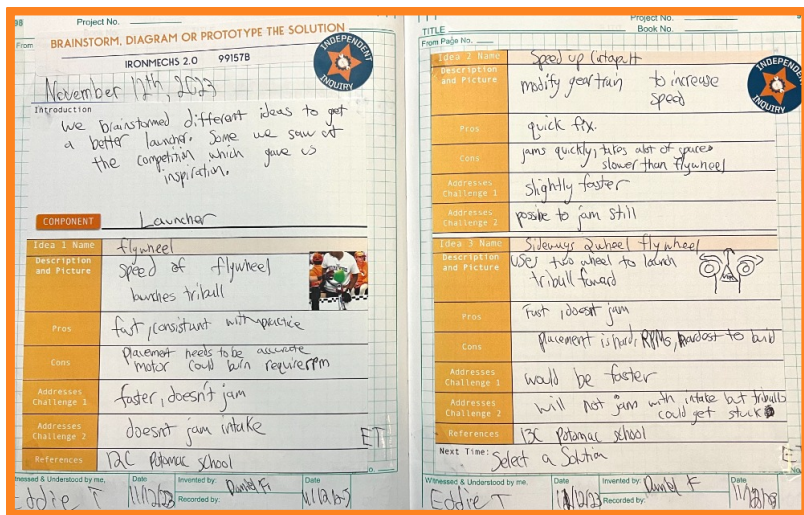 98
Project No.
From
BRAINSTORM, DIAGRAM OR PROTOTYPE THE SOLUTION
IRONMECHS 2.0 99157B
INDEPENDENT
INQUIRY
November 12th, 2023
Introduction
We brainstormed different ideas to get
a better launcher. Some we saw at
the competition which gave us
inspiration.
COMPONENT Launcher
Idea 1 Name flywheel
Description and Picture
speed of flywheel
launches triball
Pros
fast, consistant with practice
Cons
Placement needs to be accurate
motor could burn require rpm
Addresses Challenge 1
faster, doesn't jam
Addresses Challenge 2
doesnt jam intake
ET
References 12C Potomac school
Witnessed & Understood by me,
Date
Invented by:
Date
Recorded by:
Eddie T
11/12/23
Daniel F
Project No.
TITLE
Book No.
From Page No.
Idea 2 Name Speed up Catapult
Description and Picture
modify gear train to increase
speed
INDEPENDENT
INQUIRY
Pros
quick fix.
Cons
jams quickly, takes alot of space,
slower than flywheel
Addresses Challenge 1
slightly faster
Addresses Challenge 2
possible to jam still
Idea 3 Name Sideways 2wheel flywheel
Description and Picture
uses two wheel to launch
triball foward
Pros
Fast, doesnt jam
Cons
placement is hard, RPMs, hardest to build
Addresses Challenge 1
would be faster
Addresses Challenge 2
will not jam with intake but triballs
could get stuck
References 13C Potomac school
Next Time: Select a Solution
Witnessed & Understood by me,
Date
Invented by: Daniel F
Date
Recorded by:
Eddie T
11/12/23